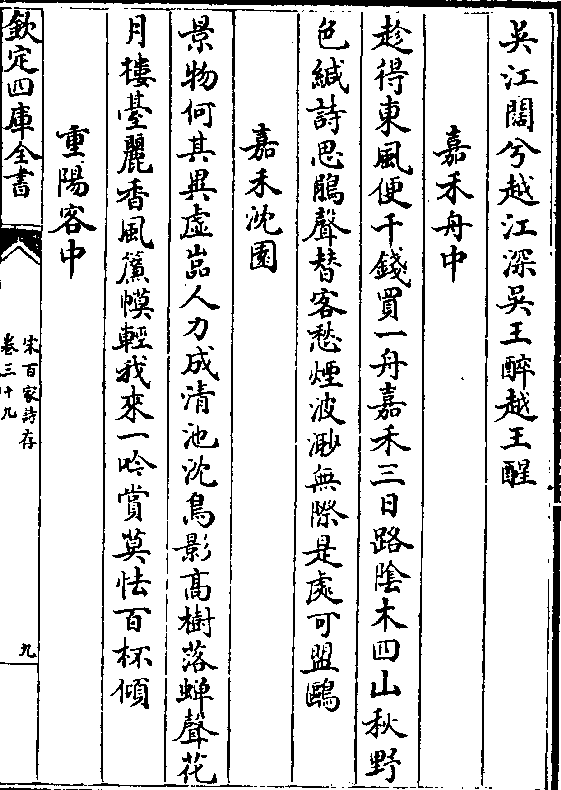 吳江闊兮越江深吳王醉越王醒
嘉禾舟中
趁得東風便千錢買一舟嘉禾三日路陰木四山秋野
色緘詩思鵑聲替客愁煙波渺無際是處可盟鷗
嘉禾沈園
景物何其異虛嵓人力成清池沈鳥影高樹落蟬聲花
月樓臺麗香風簾幙輕我來一吟賞莫怯百杯傾
重陽客中
欽定四庫全書
宋百家詩存
卷三十九
九